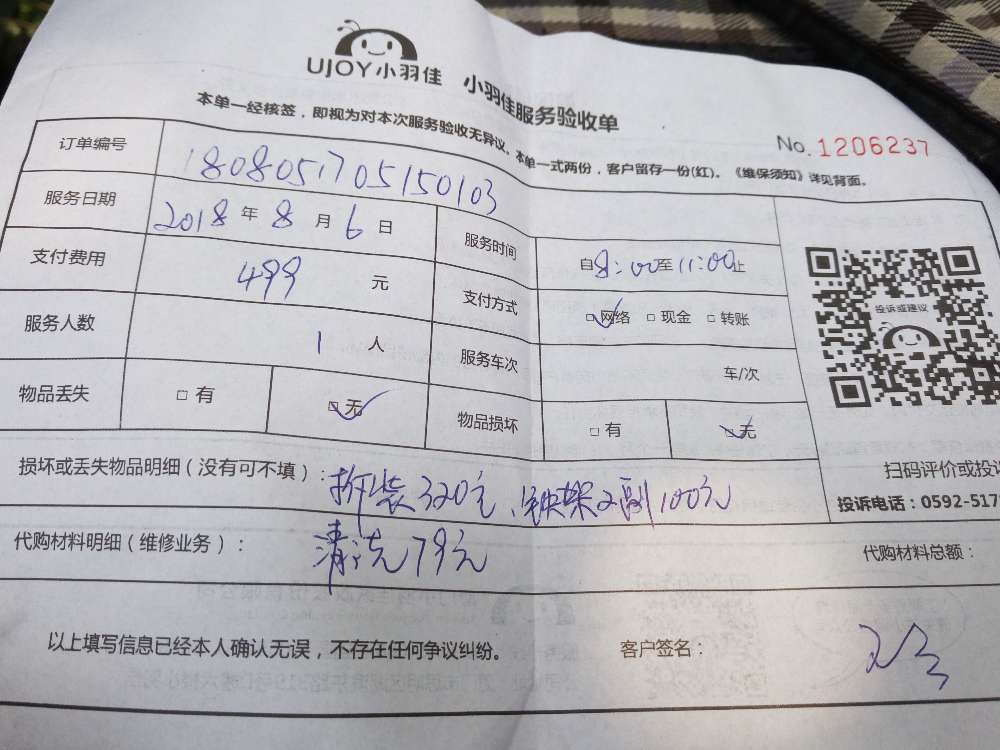 UJOY小羽佳 小羽佳服务验收单
本单一经核签，即视为对本次服务验收无异议。本单一式两份，客户留存一份(红)。《维保须知》详见背面。
No.1206237
订单编号 1808051705150103
服务日期 2018年8月6日 服务时间 自8:00至11:00止
支付费用 499元 支付方式 □网络 □现金 □转账
服务人数 1人 服务车次 车/次
物品丢失 □有 □无 物品损坏 □有 □无
投诉或建议
扫码评价或投诉
投诉电话：0592-517
损坏或丢失物品明细（没有可不填）：拆装320元、铁架2副100元
代购材料明细（维修业务）：清洗79元
代购材料总额：
以上填写信息已经本人确认无误，不存在任何争议纠纷。 客户签名：